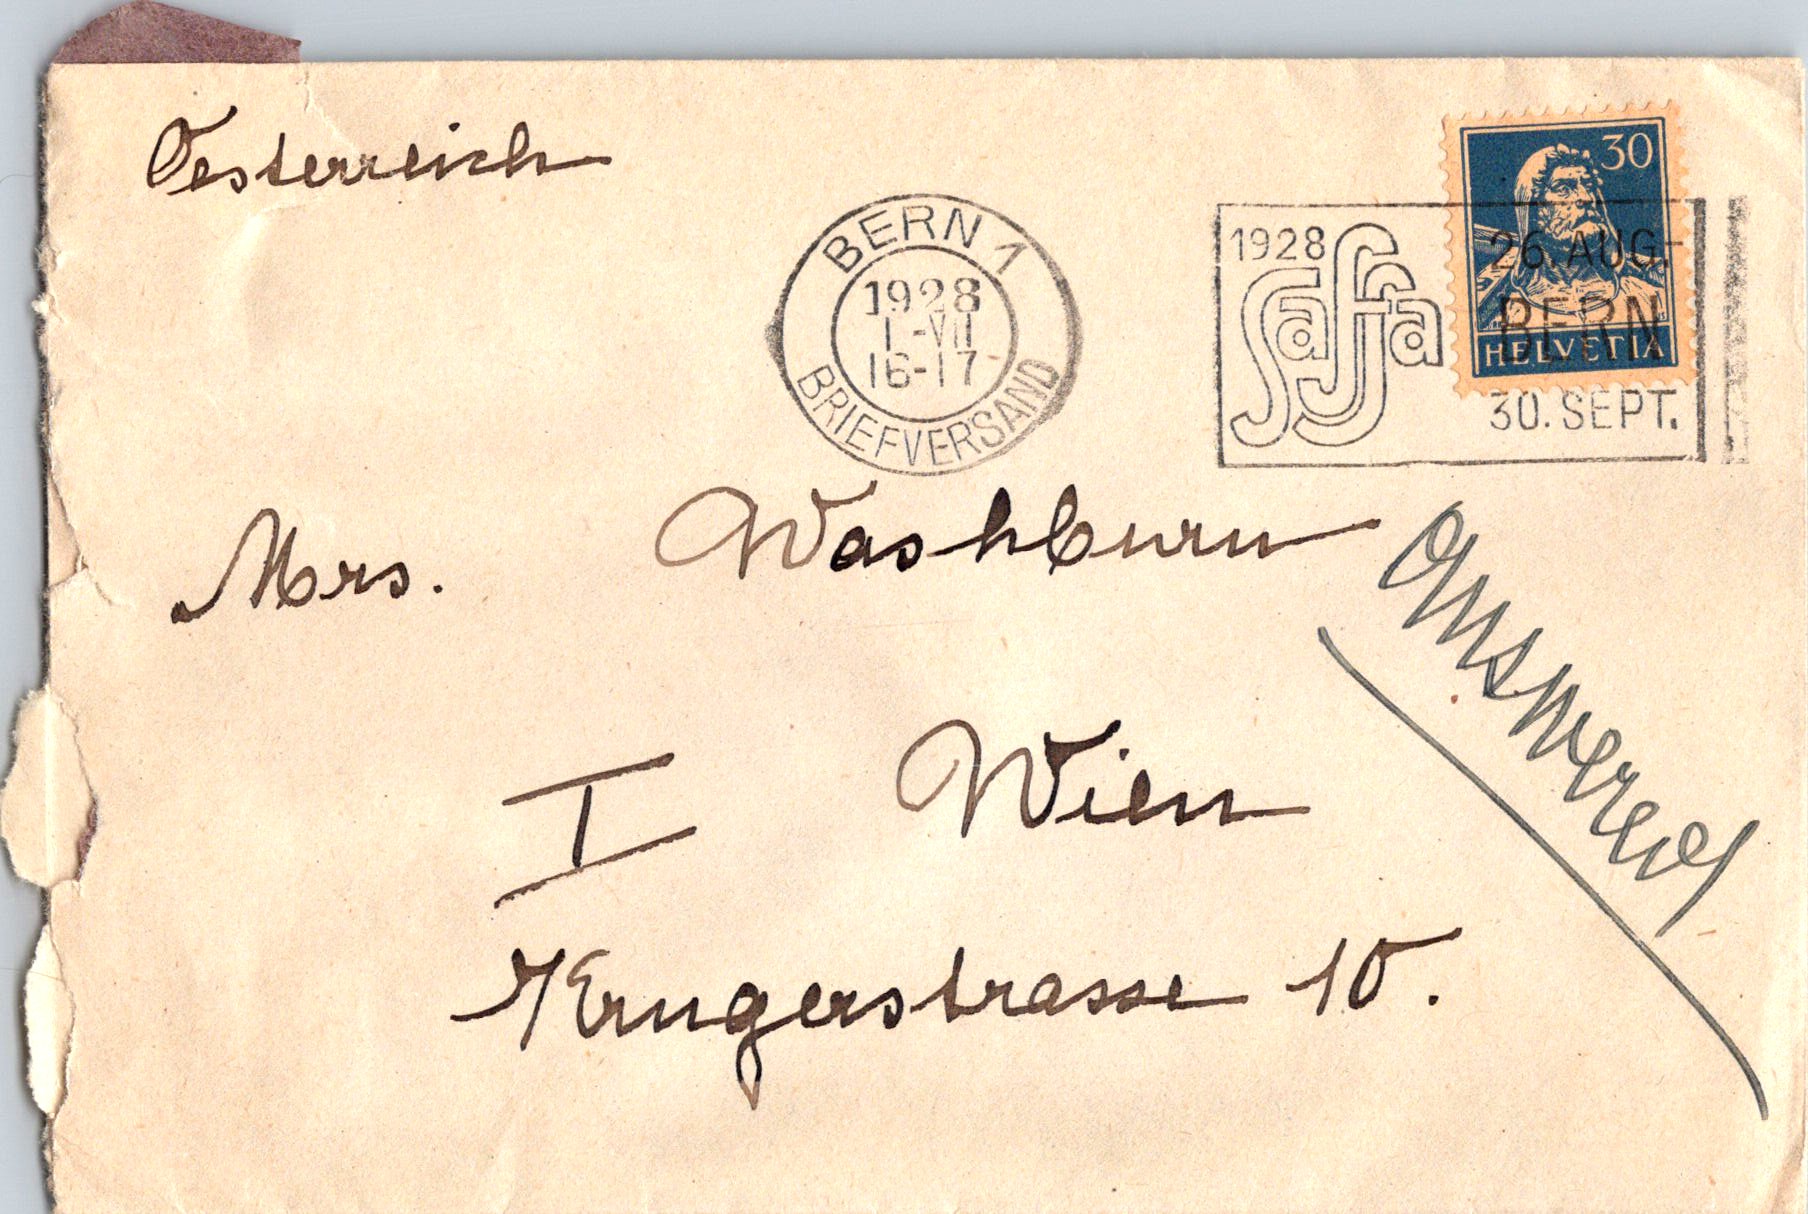 Oesterreich
BERN 1
1928
1.-VII
16-17
BRIEFVERSAND
1928
Saffa
26. AUG.-
BERN
30. SEPT.
30
HELVETIA
Mrs. Washburn
Answered
I Wien
Krugerstrasse 10.